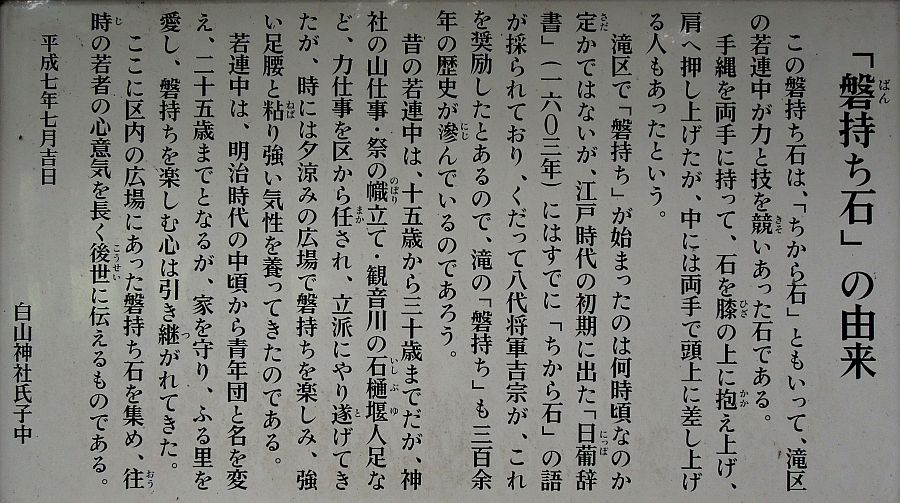 「磐持ち石」の由来
この磐持ち石は、「ちから石」ともいって、滝区
の若連中が力と技を競いあった石である。
手縄を両手に持って、石を膝の上に抱え上げ、
肩へ押し上げたが、中には両手で頭上に差し上げ
る人もあったという。
滝区で「磐持ち」が始まったのは何時頃なのか
定かではないが、江戸時代の初期に出た「日葡辞
書」（一六〇三年）にはすでに「ちから石」の語
が採られており、くだって八代将軍吉宗が、これ
を奨励したとあるので、滝の「磐持ち」も三百余
年の歴史が滲んでいるのであろう。
昔の若連中は、十五歳から三十歳までだが、神
社の山仕事・祭の幟立て・観音川の石樋堰人足な
ど、力仕事を区から任され、立派にやり遂げてき
たが、時には夕涼みの広場で磐持ちを楽しみ、強
い足腰と粘り強い気性を養ってきたのである。
若連中は、明治時代の中頃から青年団と名を変
え、二十五歳までとなるが、家を守り、ふる里を
愛し、磐持ちを楽しむ心は引き継がれてきた。
ここに区内の広場にあった磐持ち石を集め、往
時の若者の心意気を長く後世に伝えるものである。
平成七年七月吉日
白山神社氏子中